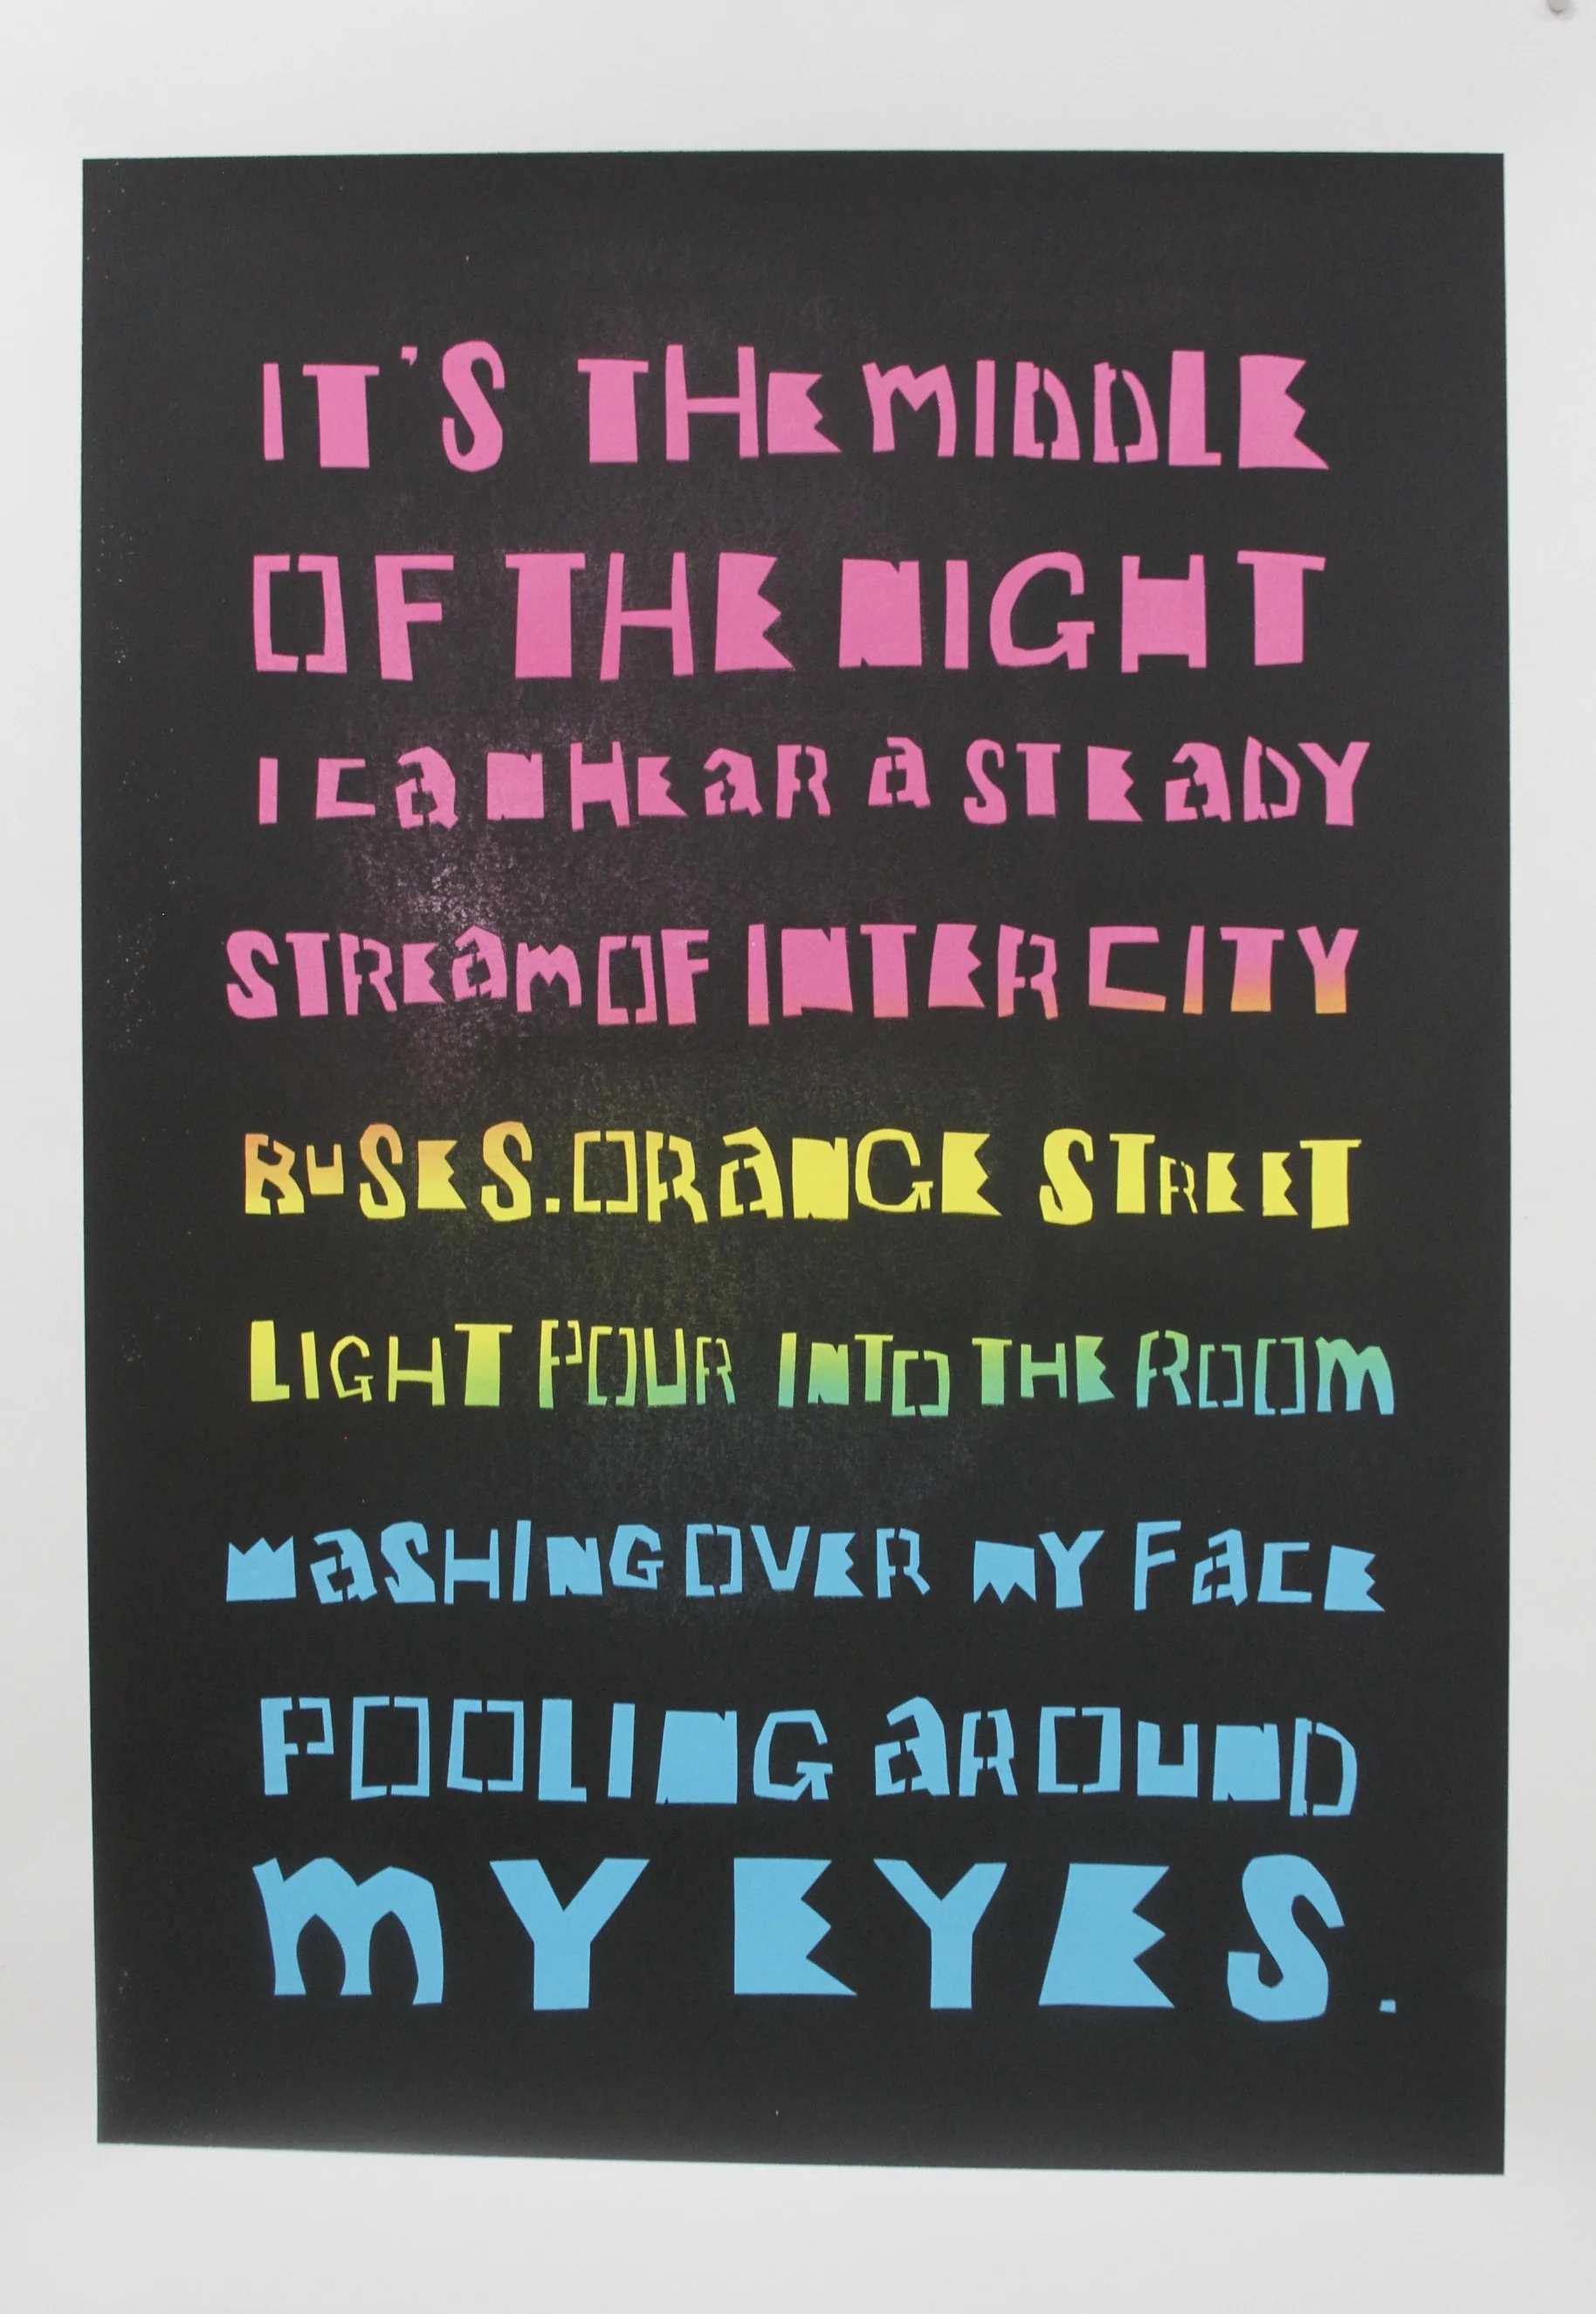 IT'S THE MIDDLE
OF THE NIGHT
I CAN HEAR A STEADY
STREAM OF INTER CITY
BUSES. ORANGE STREET
LIGHT POUR INTO THE ROOM
WASHING OVER MY FACE
POOLING AROUND
MY EYES.